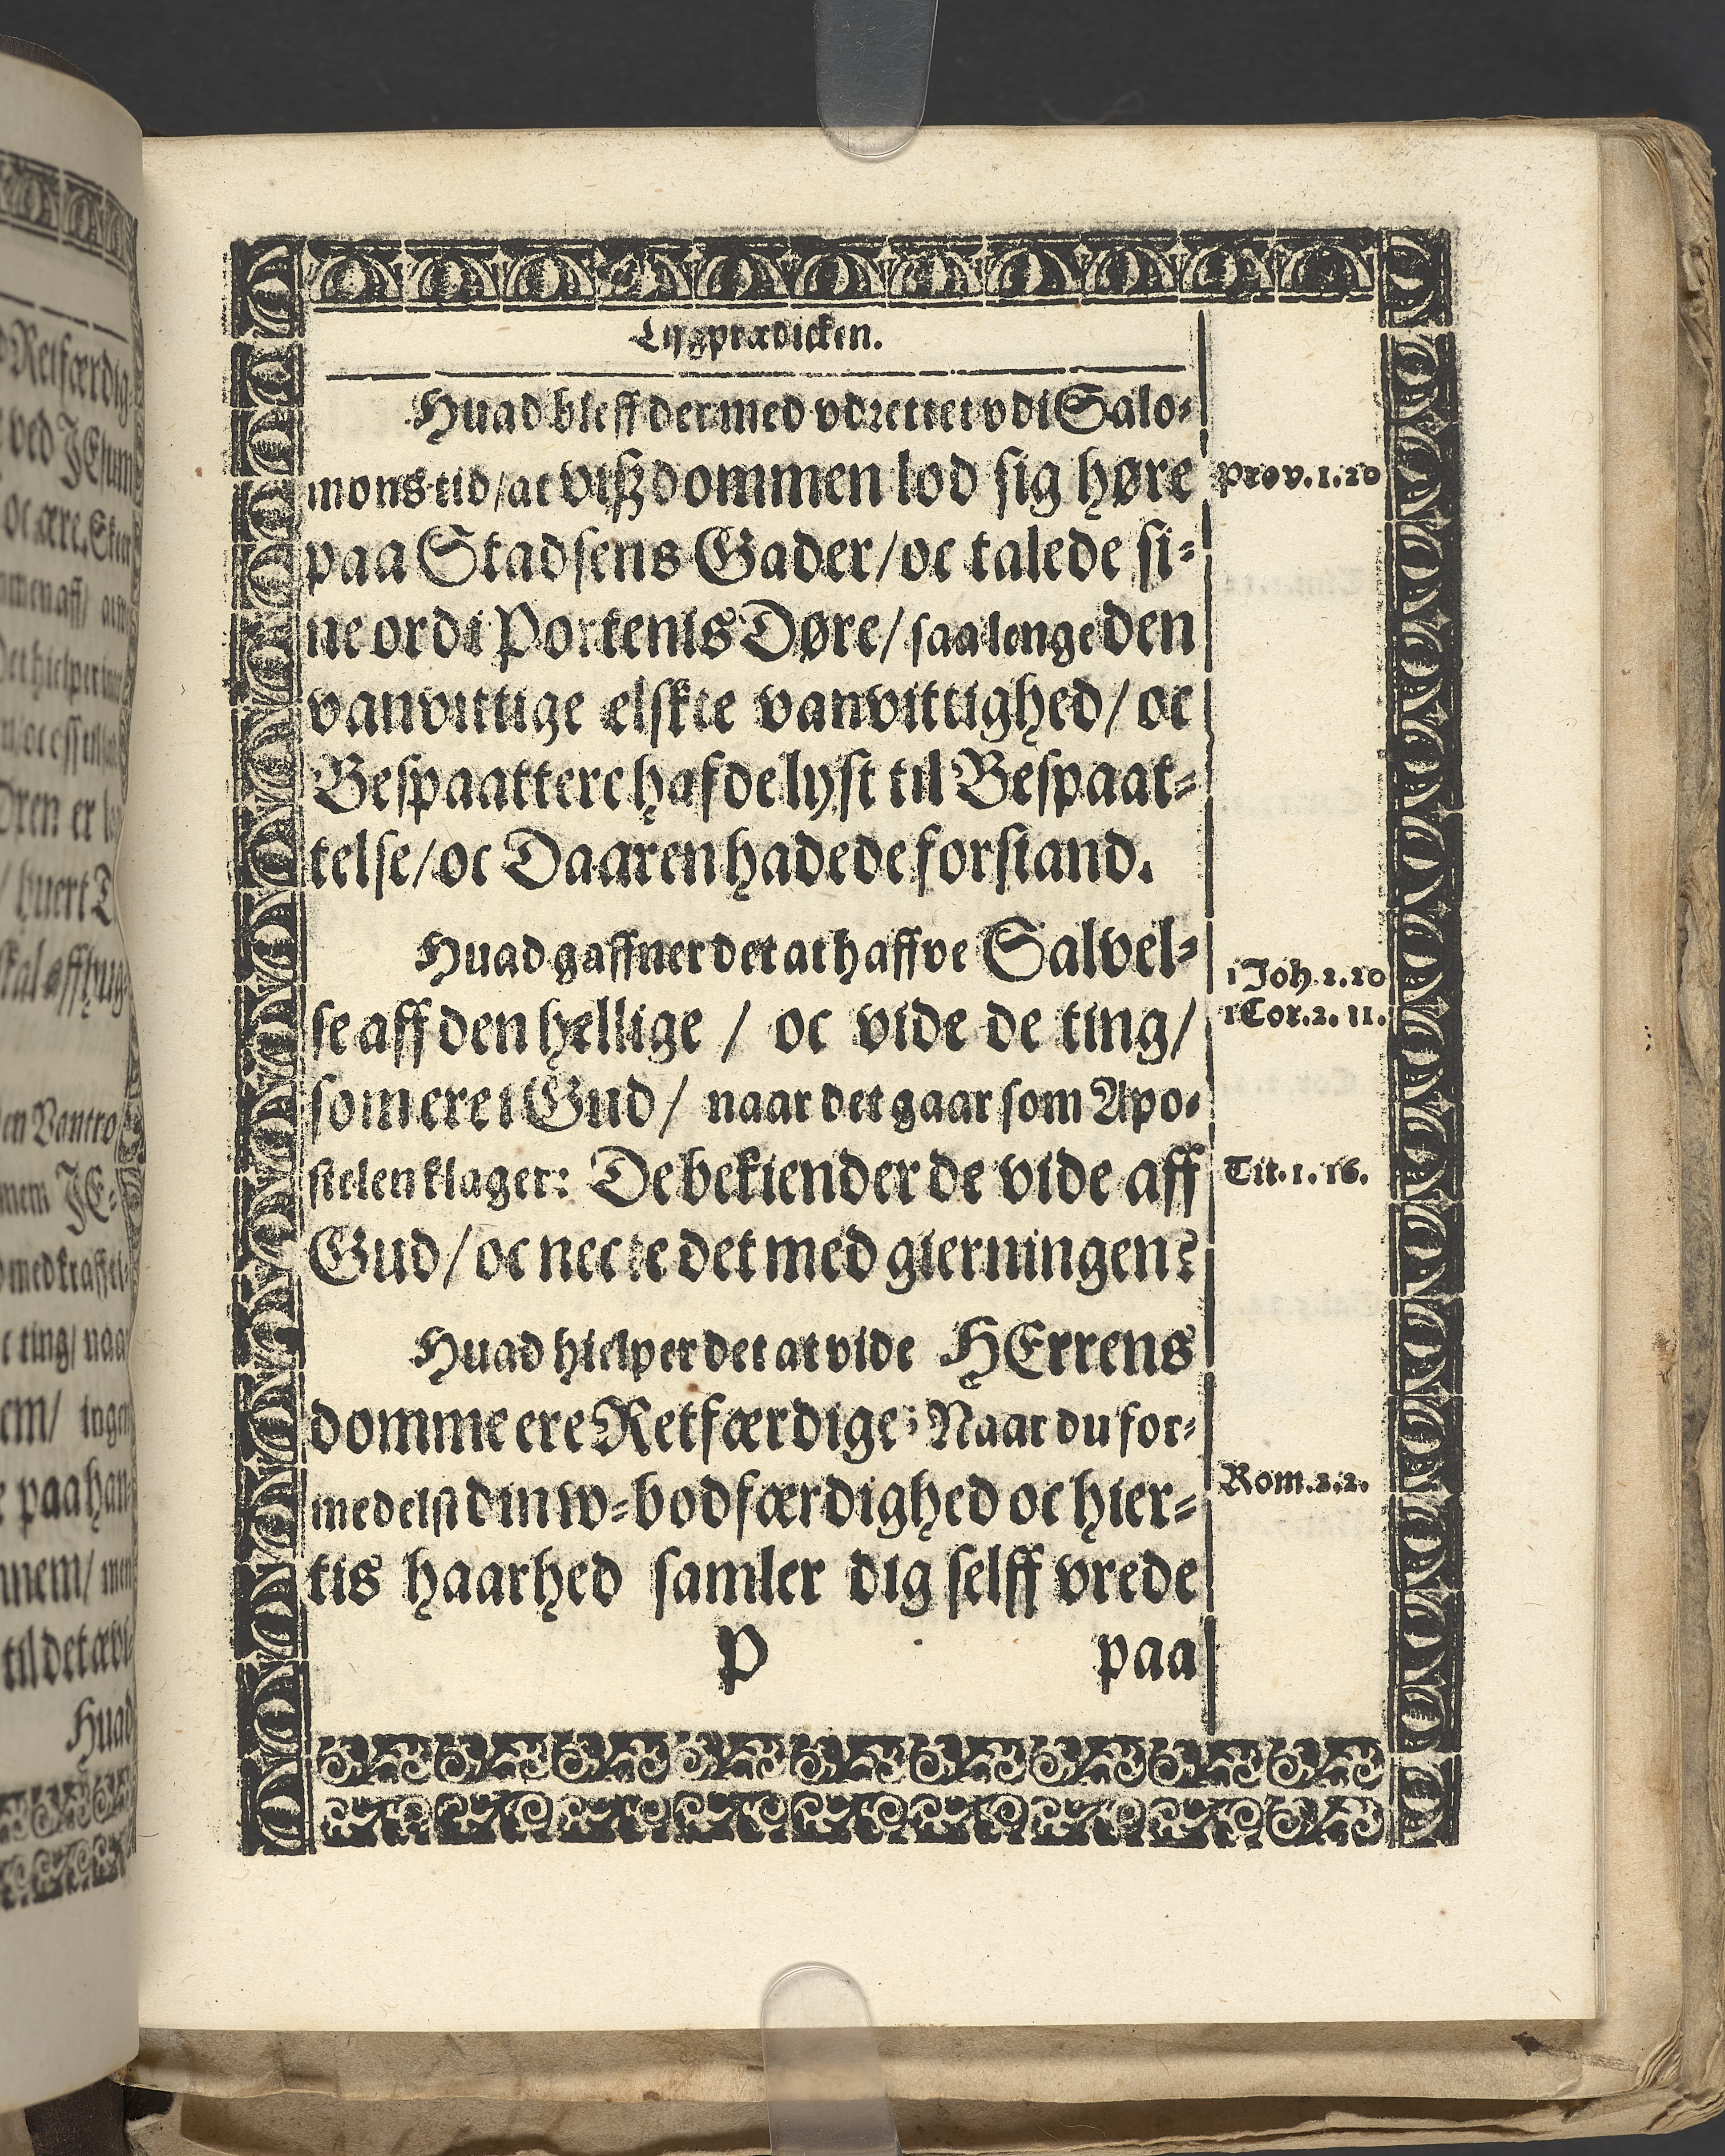 Liigprædicken.
Huad bleff dermed vdrettet vdi Salo-
mons tid/at vißdommen lod sig høre
Prov.1.20
paa Stadsens Gader/oc talede si-
ne ord i Portenis Døre/saa lenge den
vanvittige elskte vanvittighed/oc
Bespaattere hafde lyst til Bespaat-
telse/oc Daaren hadede forstand.
Huad gaffner det at haffve Salvel-
1Joh.2.20
se aff den hellige / oc vide de ting/
1Cor.2.11.
som ere i Gud/ naar det gaar som Apo-
stelen klager: De bekiender de vide aff
Tit.1.16.
Gud/oc necte det med gierningen?
Huad hielper det at vide HErrens
domme ere Retfærdige; Naar du for-
medelst din w-bodfærdighed oc hier-
Rom.2.2.
tis haarhed samler dig selff vrede
P paa